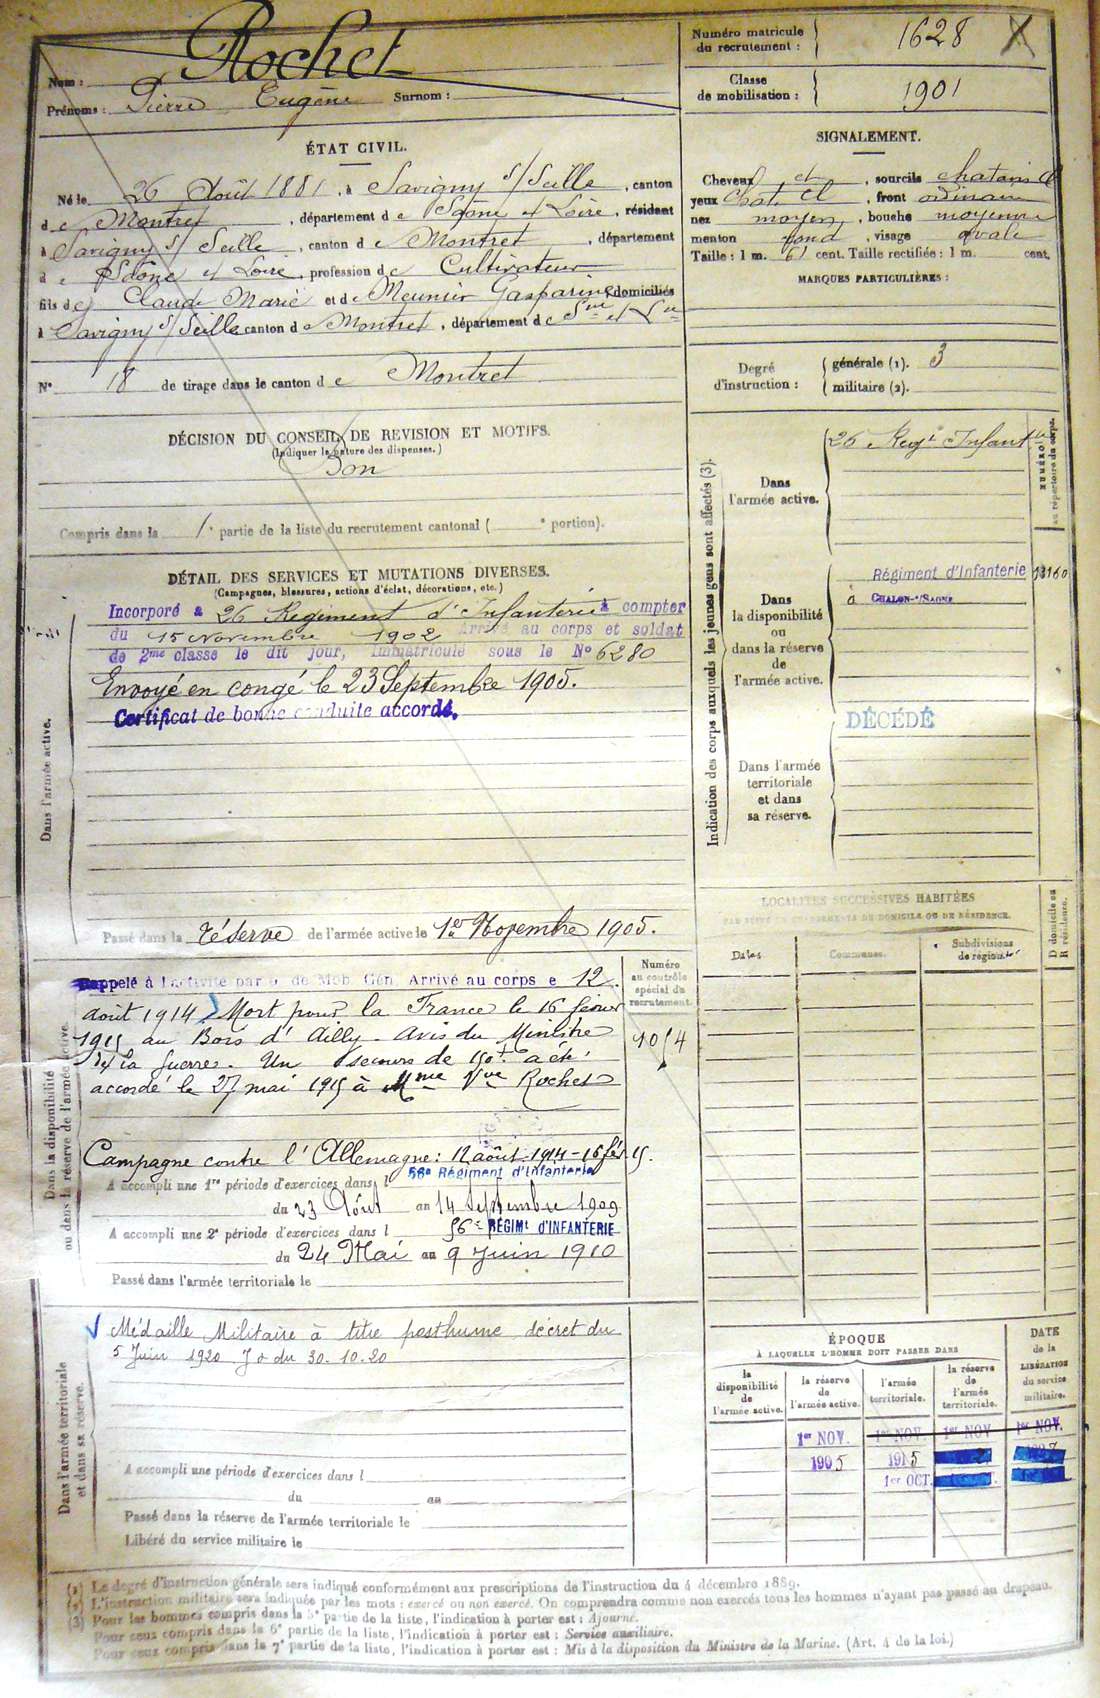 Nom : Rochet
Prénoms : Pierre Eugène Surnom :
Numéro matricule
du recrutement : 1628
Classe
de mobilisation : 1901
ÉTAT CIVIL.
Né le 26 Août 1881, à Savigny s/ Seille, canton
de Montret, département de Saône et Loire, résidant
à Savigny s/ Seille, canton de Montret, département
de Saône et Loire, profession de Cultivateur
fils de Claude Marie et de Meunier Gasparine, domiciliés
à Savigny s/ Seille canton de Montret, département de Sne et Lre
N° 18 de tirage dans le canton de Montret
SIGNALEMENT.
Cheveux et, sourcils chatains cl
yeux chat. cl, front ordinaire
nez moyen, bouche moyenne
menton rond, visage ovale
Taille : 1 m. 61 cent. Taille rectifiée : 1 m. cent.
MARQUES PARTICULIÈRES :
Degré
d'instruction :
générale (1). 3
militaire (2).
DÉCISION DU CONSEIL DE REVISION ET MOTIFS.
(Indiquer la nature des dispenses.)
Bon
Compris dans la 1e partie de la liste du recrutement cantonal ( e portion).
DÉTAIL DES SERVICES ET MUTATIONS DIVERSES.
(Campagnes, blessures, actions d'éclat, décorations, etc.)
Dans l'armée active.
Incorporé à 26 Régiment d'Infanterie à compter
du 15 Novembre 1902 Arrivé au corps et soldat
de 2me classe le dit jour, immatriculé sous le No 6280
Envoyé en congé le 23 Septembre 1905.
Certificat de bonne conduite accordé.
Passé dans la réserve de l'armée active le 1er Novembre 1905.
Indication des corps auxquels les jeunes gens sont affectés (3).
NUMÉRO
au répertoire du corps.
Dans
l'armée active.
26 Regt Infantie
Dans
la disponibilité
ou
dans la réserve
de
l'armée active.
Régiment d'Infanterie
à CHALON-s/SAONE
DÉCÉDÉ
Dans l'armée
territoriale
et dans
sa réserve.
LOCALITÉS SUCCESSIVES HABITÉES
PAR SUITE DE CHANGEMENTS DE DOMICILE OU DE RÉSIDENCE.
Dates.
Communes.
Subdivisions
de région.
D domicile ou
R résidence.
Dans la disponibilité
ou dans la réserve de l'armée active.
Numéro
au contrôle
spécial du
recrutement.
1054
Rappelé à l'activité par o de Mob. Gén. Arrivé au corps e 12
août 1914 Mort pour la France le 16 février
1915 au Bois d'Ailly. Avis du Ministre
de la Guerre. Un secours de 150f a été
accordé le 27 mai 1915 à Mme Vve Rochet
Campagne contre l'Allemagne : 12 août 1914 - 16 fév 15.
A accompli une 1re période d'exercices dans l 56e Régiment d'Infanterie
du 23 Août au 14 Septembre 1909
A accompli une 2e période d'exercices dans l 56e RÉGIMt D'INFANTERIE
du 24 Mai au 9 Juin 1910
Passé dans l'armée territoriale le
Dans l'armée territoriale
et dans sa réserve.
Médaille Militaire à titre posthume décret du
5 Juin 1920 Jo du 30.10.20
A accompli une période d'exercices dans l
du au
Passé dans la réserve de l'armée territoriale le
Libéré du service militaire le
ÉPOQUE
A LAQUELLE L'HOMME DOIT PASSER DANS
la
disponibilité
de
l'armée active.
la réserve
de
l'armée active.
l'armée
territoriale.
la réserve
de
l'armée
territoriale.
DATE
de la
LIBÉRATION
du service
militaire.
1er NOV. 1er NOV. 1er NOV 1er NOV.
1905 1915
1er OCT.
(1) Le degré d'instruction générale sera indiqué conformément aux prescriptions de l'instruction du 4 décembre 1889.
(2) L'instruction militaire sera indiquée par les mots : exercé ou non exercé. On comprendra comme non exercés tous les hommes n'ayant pas passé au drapeau.
(3) Pour les hommes compris dans la 5e partie de la liste, l'indication à porter est : Ajourné.
Pour ceux compris dans la 6e partie de la liste, l'indication à porter est : Service auxiliaire.
Pour ceux compris dans la 7e partie de la liste, l'indication à porter est : Mis à la disposition du Ministre de la Marine. (Art. 4 de la loi.)